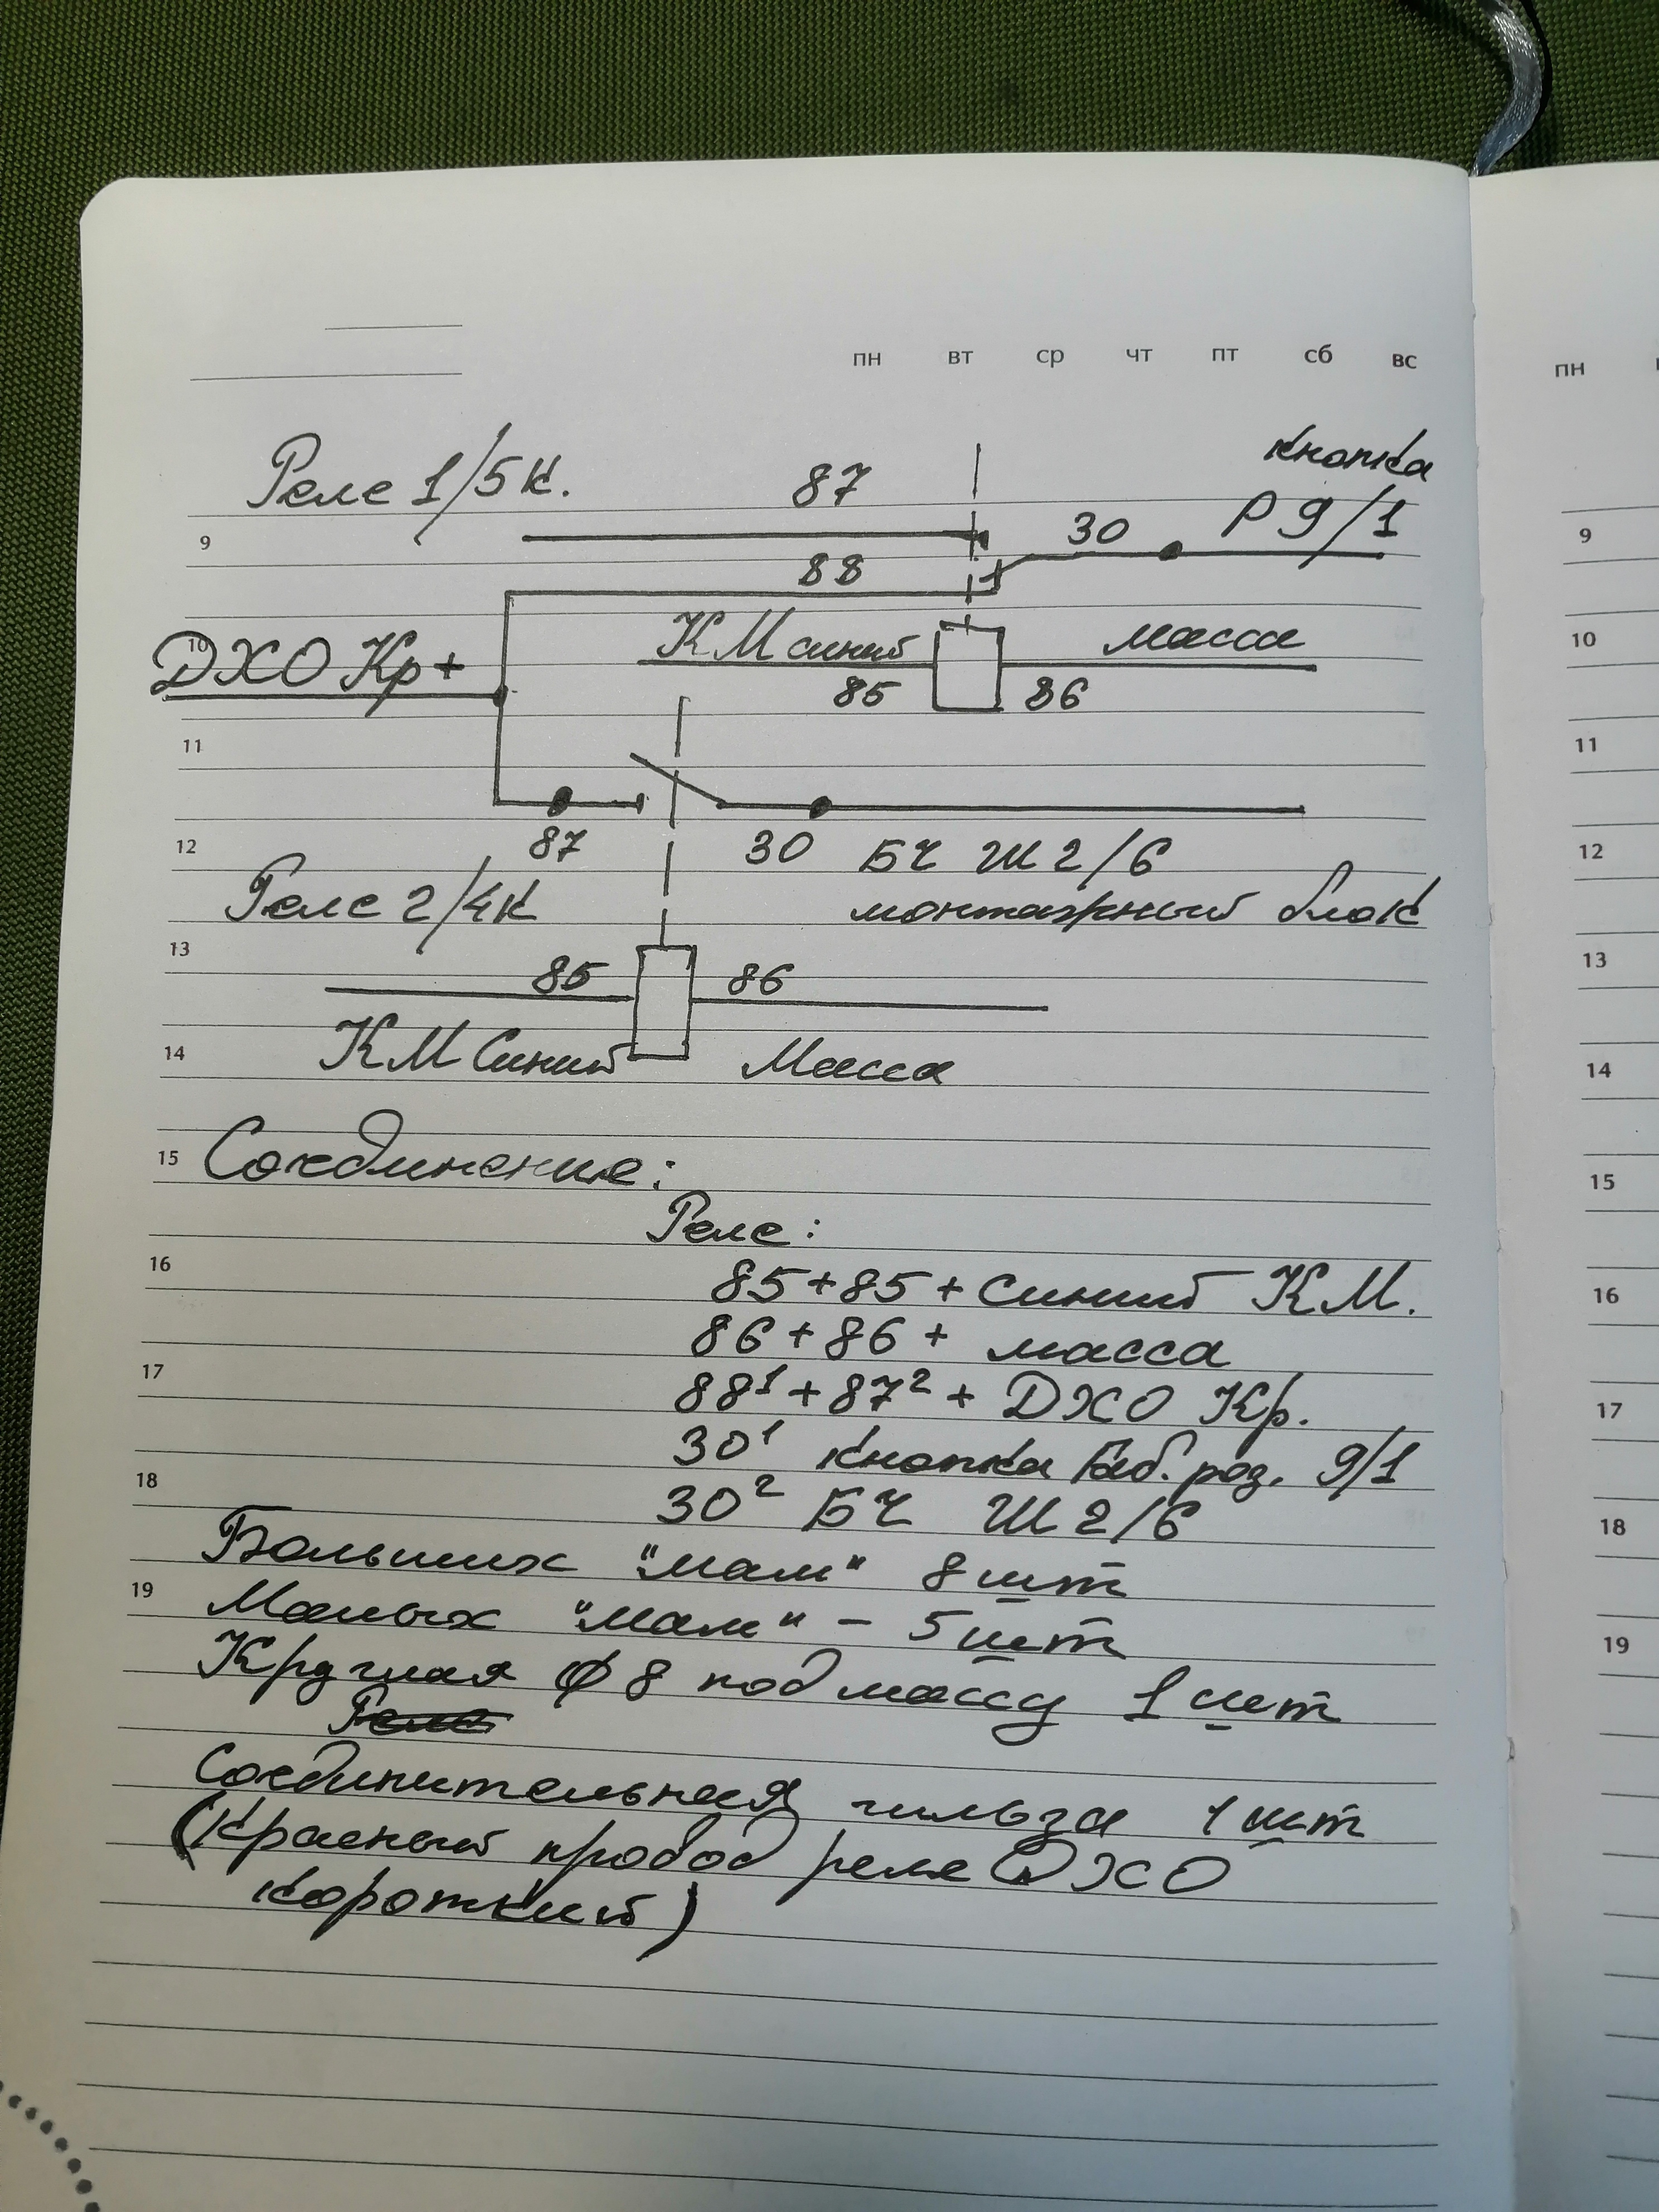 пн вт ср чт пт сб вс
пн
Реле 1/5к.
87
кнопка
30
Р 9/1
9
88
ДХО Кр +
10
КМ синий
масса
85
86
11
87
30
БЧ Ш 2/6
12
Реле 2/4к
монтажный блок
13
85
86
14
КМ Синий
Масса
15
Соединение:
Реле:
16
85+85+синий КМ.
86+86+ масса
17
88¹+87²+ ДХО Кр.
30¹ кнопка Габ. роз. 9/1
18
30² БЧ Ш 2/6
Больших "мам" 8 шт
19
Малых "мам" - 5 шт
Круглая ф 8 под массу 1 шт
Реле
Соединительная гильза 1 шт
(Красный провод реле ДХО
короткий)
9
10
11
12
13
14
15
16
17
18
19